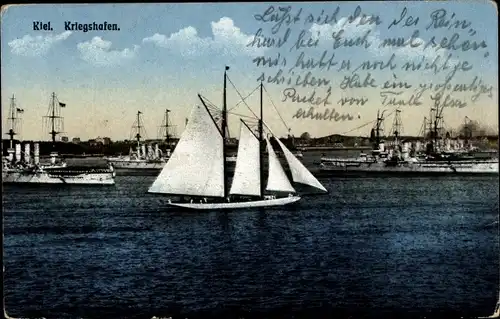 Kiel. Kriegshafen.
Läßt sich den der Rein
hard bei Euch mal sehen,
mir hat er noch nichts
schreiben. Habe ein großartiges
Packet von Tante Elsa
erhalten.